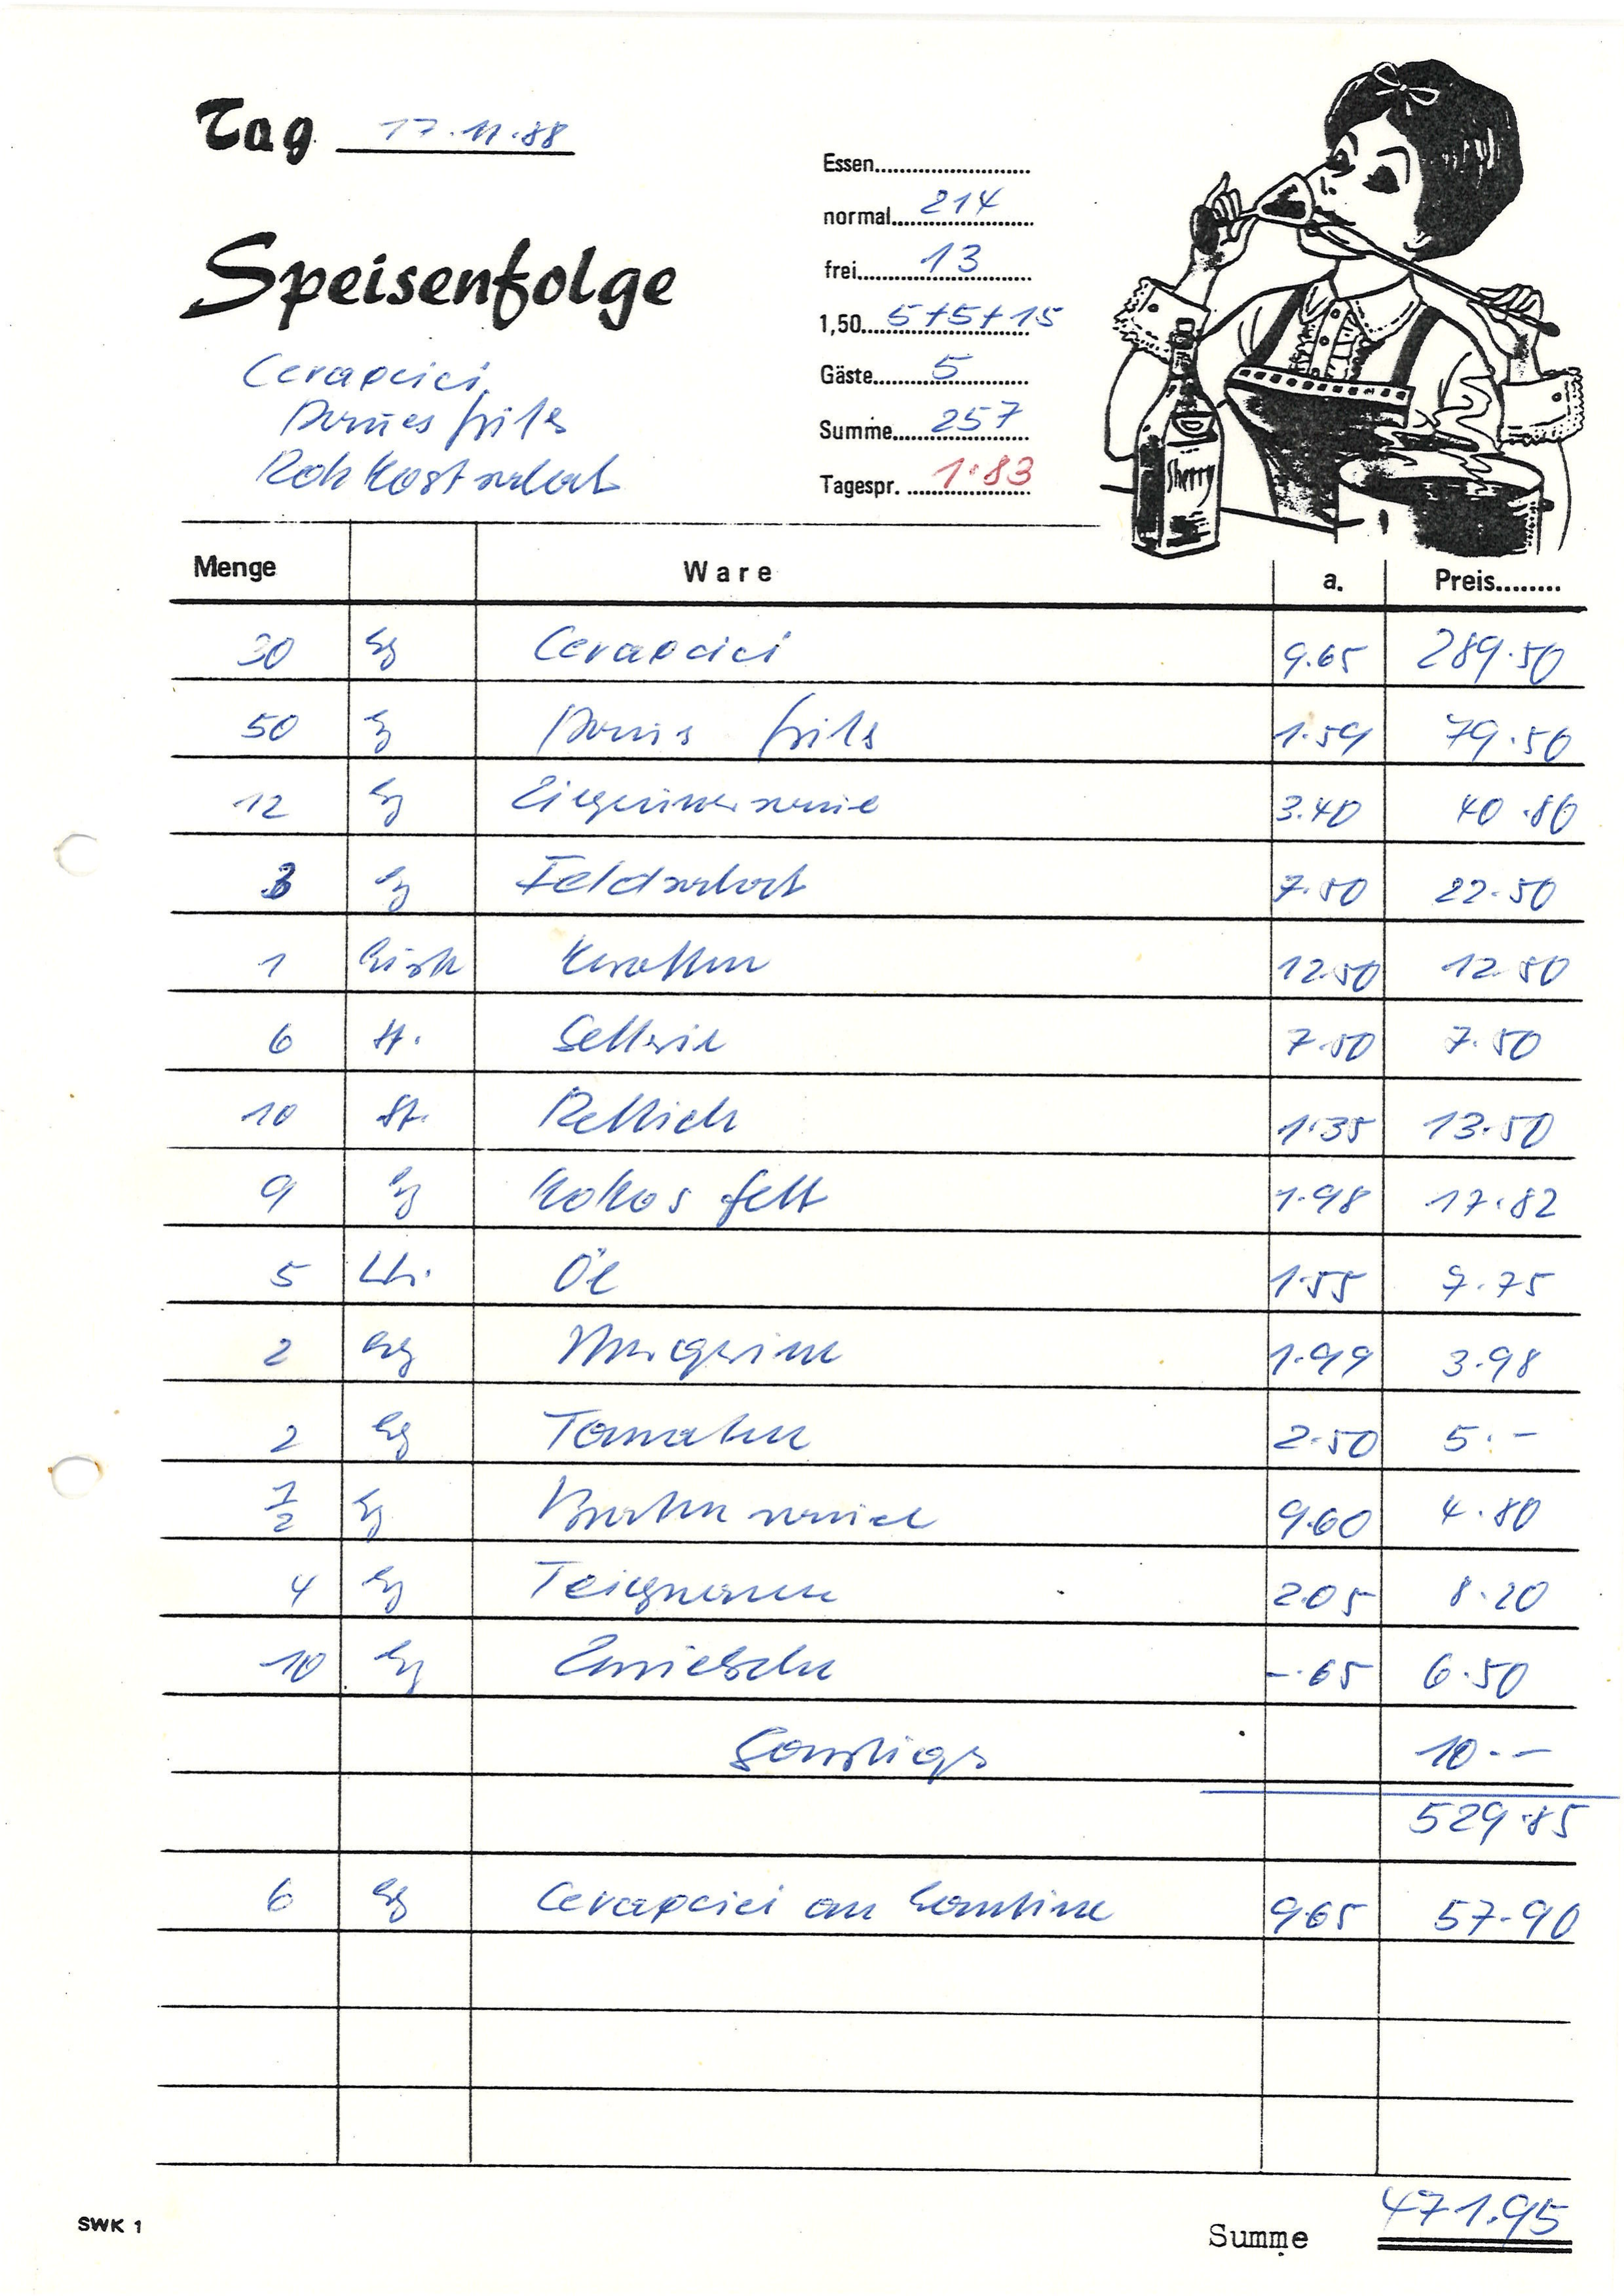 Tag 17.11.88
Speisenfolge
Cevapcici
Pomes frits
Rohkostsalat
Essen
normal 214
frei 13
1,50 5+5+15
Gäste 5
Summe 257
Tagespr. 1.83
Sherry
Menge Ware a. Preis
30 Kg Cevapcici 9.65 289.50
50 Kg Pomes frits 1.59 79.50
12 Kg Zigeunersauce 3.40 40.80
3 Kg Feldsalat 7.50 22.50
1 Kiste Karotten 12.50 12.50
6 St. Sellerie 7.50 7.50
10 St. Rettich 1.35 13.50
9 Kg Kokosfett 1.98 17.82
5 Ltr. Öl 1.55 7.75
2 Kg Margarine 1.99 3.98
2 Kg Tomaten 2.50 5.-
1/2 Kg Bratensauce 9.60 4.80
4 Kg Teigwaren 2.05 8.20
10 Kg Zwiebeln -.65 6.50
Sonstiges 10.--
529.85
6 Kg Cevapcici an Kantine 9.65 57.90
SWK 1
Summe 471.95